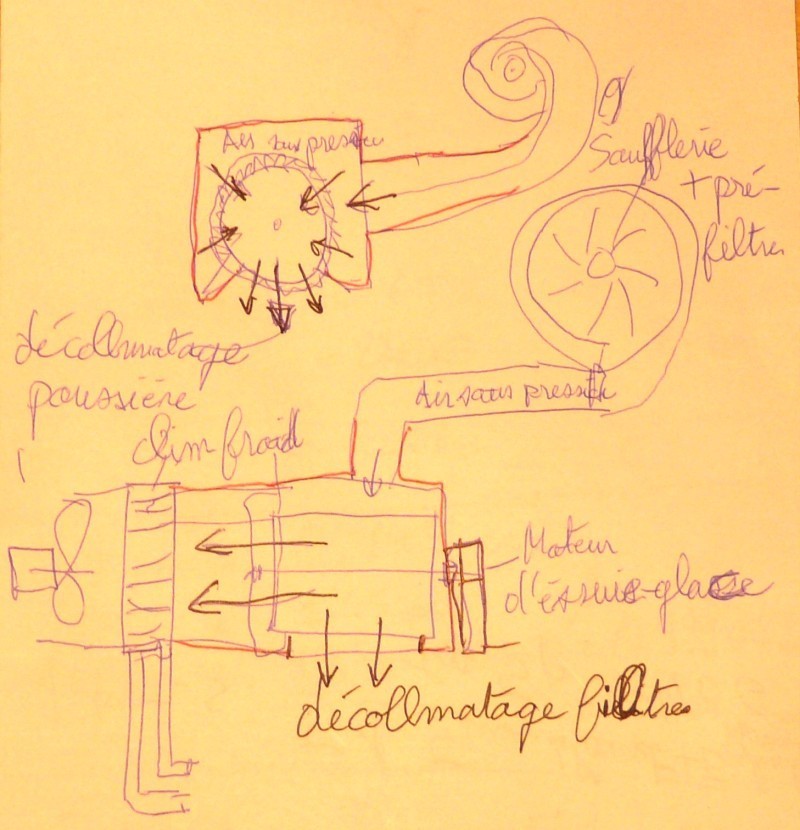 Air sous pression
Soufflerie
+ pré-
filtre
décollmatage
poussière
Air sous pression
Clim froid
Moteur
d'éssuie-glace
décollmatage filltres